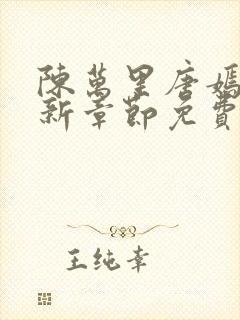 陳萬里唐嫣
新章節免費
王纯幸